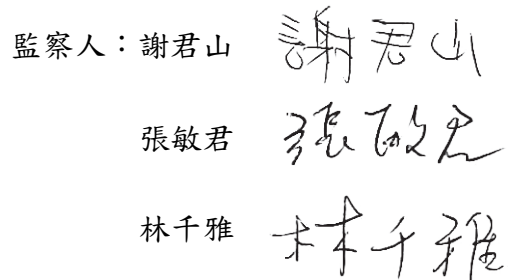 監察人：謝君山 謝君山
張敏君 張敏君
林千雅 林千雅